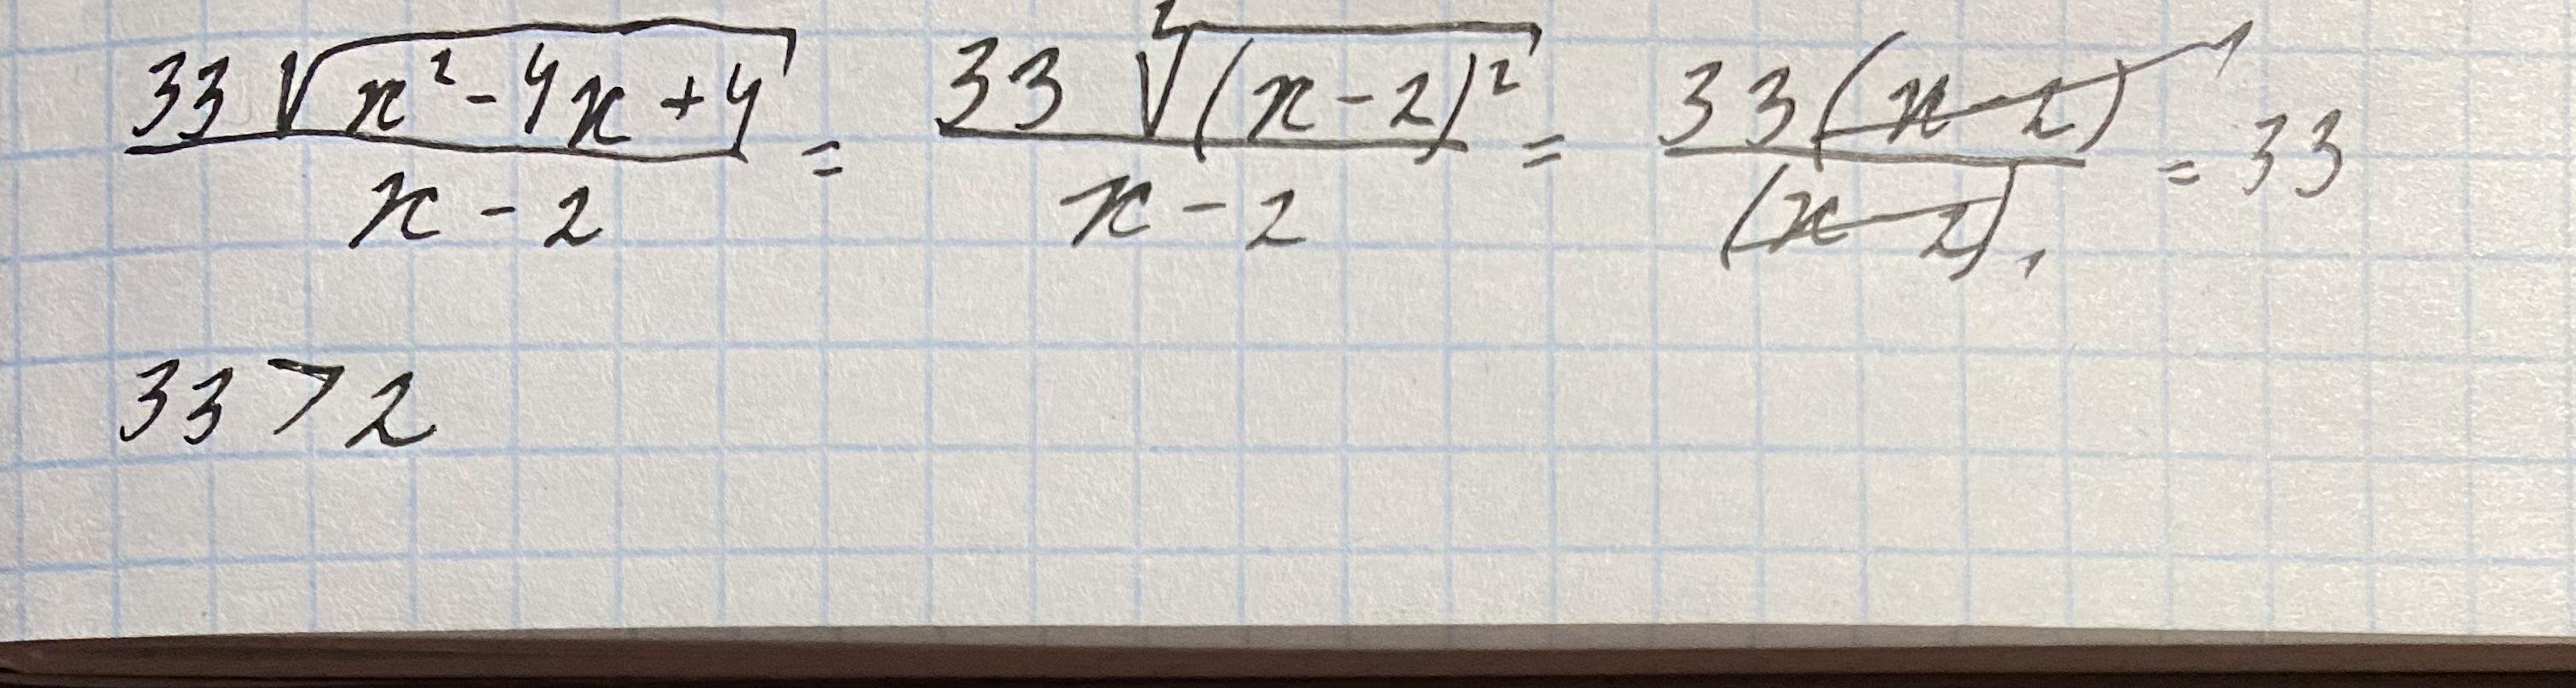 33√(x²-4x+4)/(x-2) = 33 ²√((x-2)²)/(x-2) = 33(x-2)¹/(x-2)₁ = 33
33>2